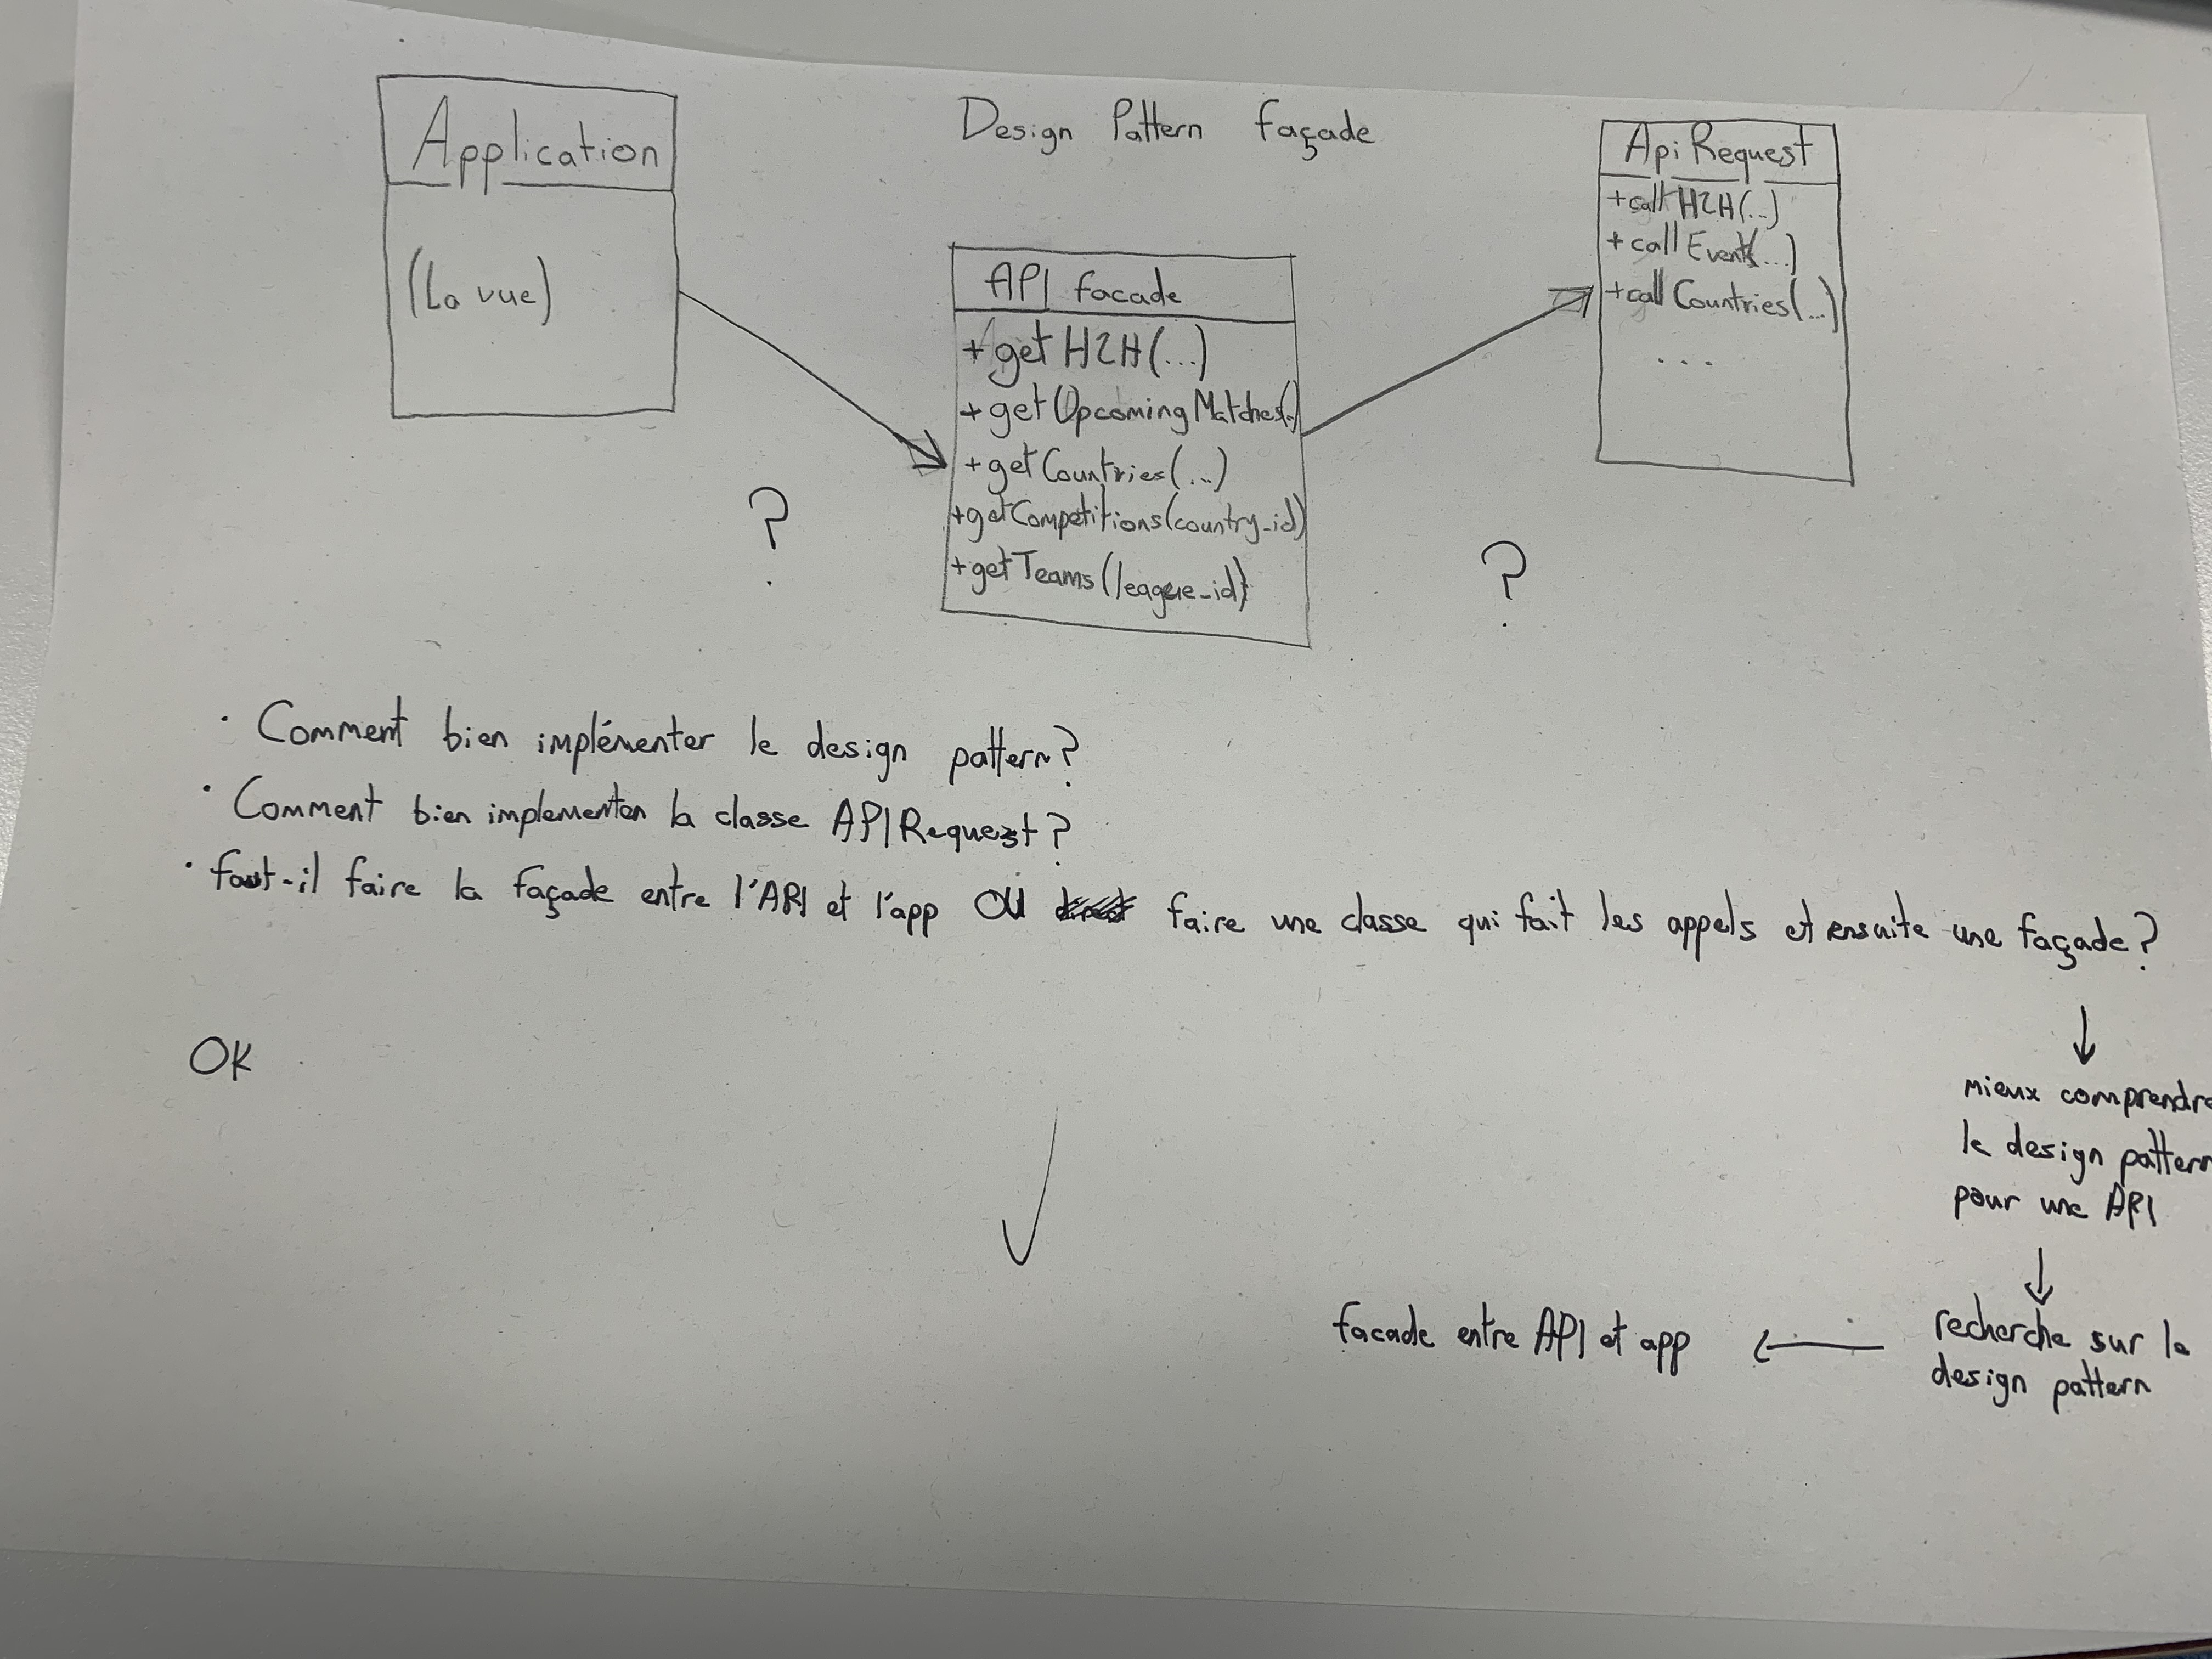 Design Pattern façade
Application
(La vue)
API facade
+ get H2H(...)
+ get Upcoming Matches(..)
+ get Countries(...)
+getCompetitions(country_id)
+get Teams(league_id)
Api Request
+call H2H(...)
+ call Events(...)
+call Countries(...)
...
?
?
· Comment bien implémenter le design pattern?
· Comment bien implementer la classe API Request?
· faut-il faire la façade entre l'API et l'app OU faire une classe qui fait les appels et ensuite une façade?
OK
mieux comprendre
le design pattern
pour une API
recherche sur le
design pattern
facade entre API et app